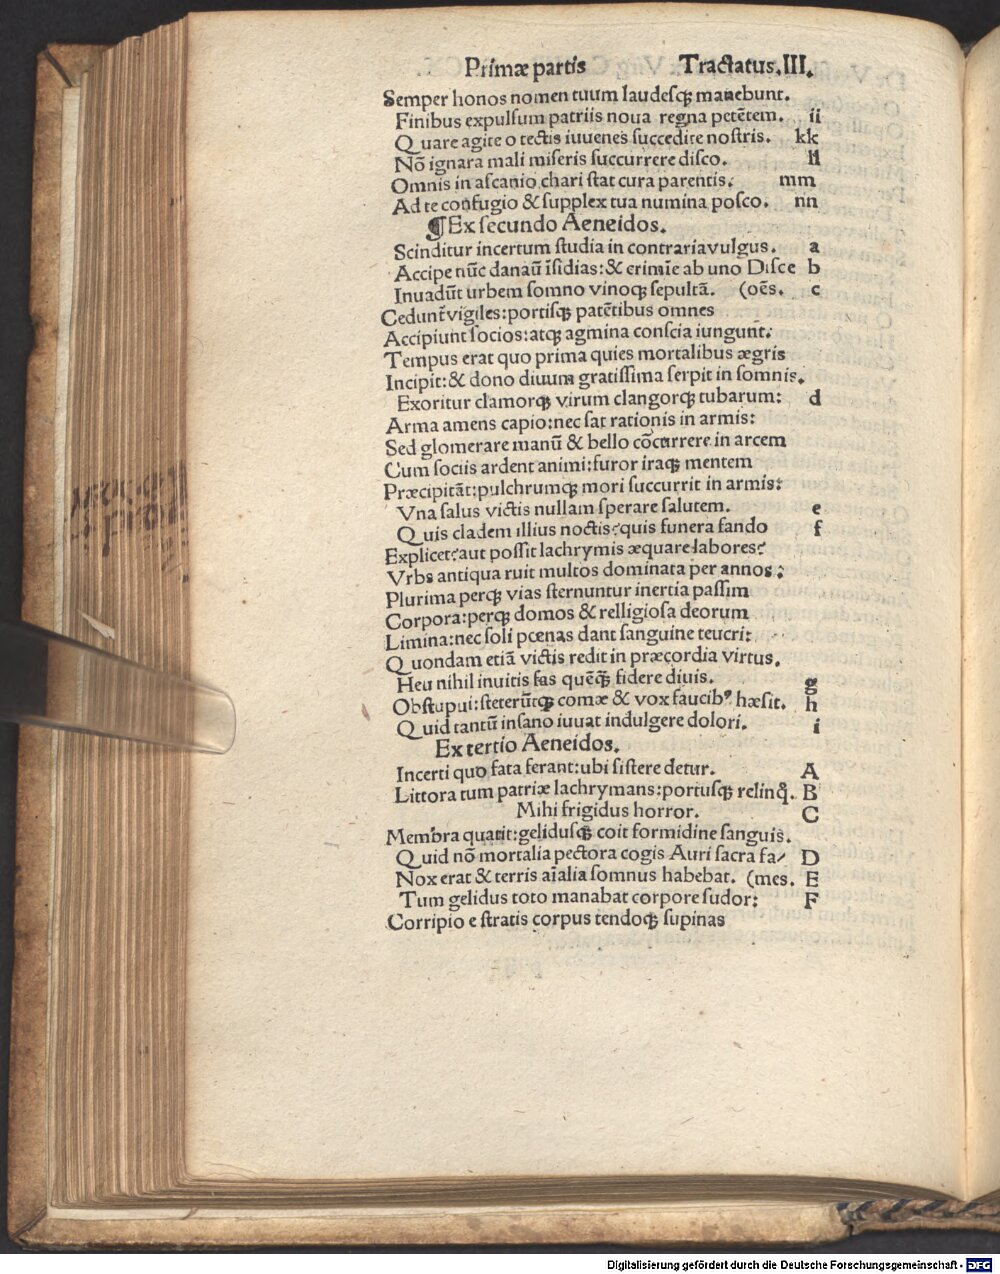 Primæ partis Tractatus.III.
Semper honos nomen tuum laudesqꝫ manebunt.
Finibus expulsum patriis noua regna petētem. ii
Quare agite o tectis iuuenes succedite nostris. kk
Nō ignara mali miseris succurrere disco. ll
Omnis in ascanio chari stat cura parentis. mm
Ad te confugio & supplex tua numina posco. nn
¶Ex secundo Aeneidos.
Scinditur incertum studia in contraria vulgus. a
Accipe nūc danaū īsidias:& crimīe ab uno Disce b
Inuadūt urbem somno vinoqꝫ sepultā. (oēs. c
Cedunt̃ vigiles:portisqꝫ patētibus omnes
Accipiunt socios:atqꝫ agmina conscia iungunt.
Tempus erat quo prima quies mortalibus ægris
Incipit:& dono diuum gratissima serpit in somnis.
Exoritur clamorqꝫ virum clangorqꝫ tubarum: d
Arma amens capio:nec sat rationis in armis:
Sed glomerare manū & bello cōcurrere in arcem
Cum sociis ardent animi:furor iraqꝫ mentem
Præcipitāt:pulchrumqꝫ mori succurrit in armis:
Vna salus victis nullam sperare salutem. e
Quis cladem illius noctis?quis funera fando f
Explicet?aut possit lachrymis æquare labores?
Vrbs antiqua ruit multos dominata per annos:
Plurima perqꝫ vias sternuntur inertia passim
Corpora:perqꝫ domos & relligiosa deorum
Limina:nec soli pœnas dant sanguine teucri:
Quondam etiā victis redit in præcordia virtus.
Heu nihil inuitis fas quēqꝫ̄ fidere diuis. g
Obstupui:steterūtqꝫ comæ & vox faucibꝰ hæsit. h
Quid tantū insano iuuat indulgere dolori. i
Ex tertio Aeneidos.
Incerti quo fata ferant:ubi sistere detur. A
Littora tum patriæ lachrymans:portusqꝫ relinq̃. B
Mihi frigidus horror. C
Membra quatit:gelidusqꝫ coit formidine sanguis.
Quid nō mortalia pectora cogis Auri sacra fa/ D
Nox erat & terris aīalia somnus habebat. (mes. E
Tum gelidus toto manabat corpore sudor: F
Corripio e stratis corpus tendoqꝫ supinas
Digitalisierung gefördert durch die Deutsche Forschungsgemeinschaft - DFG